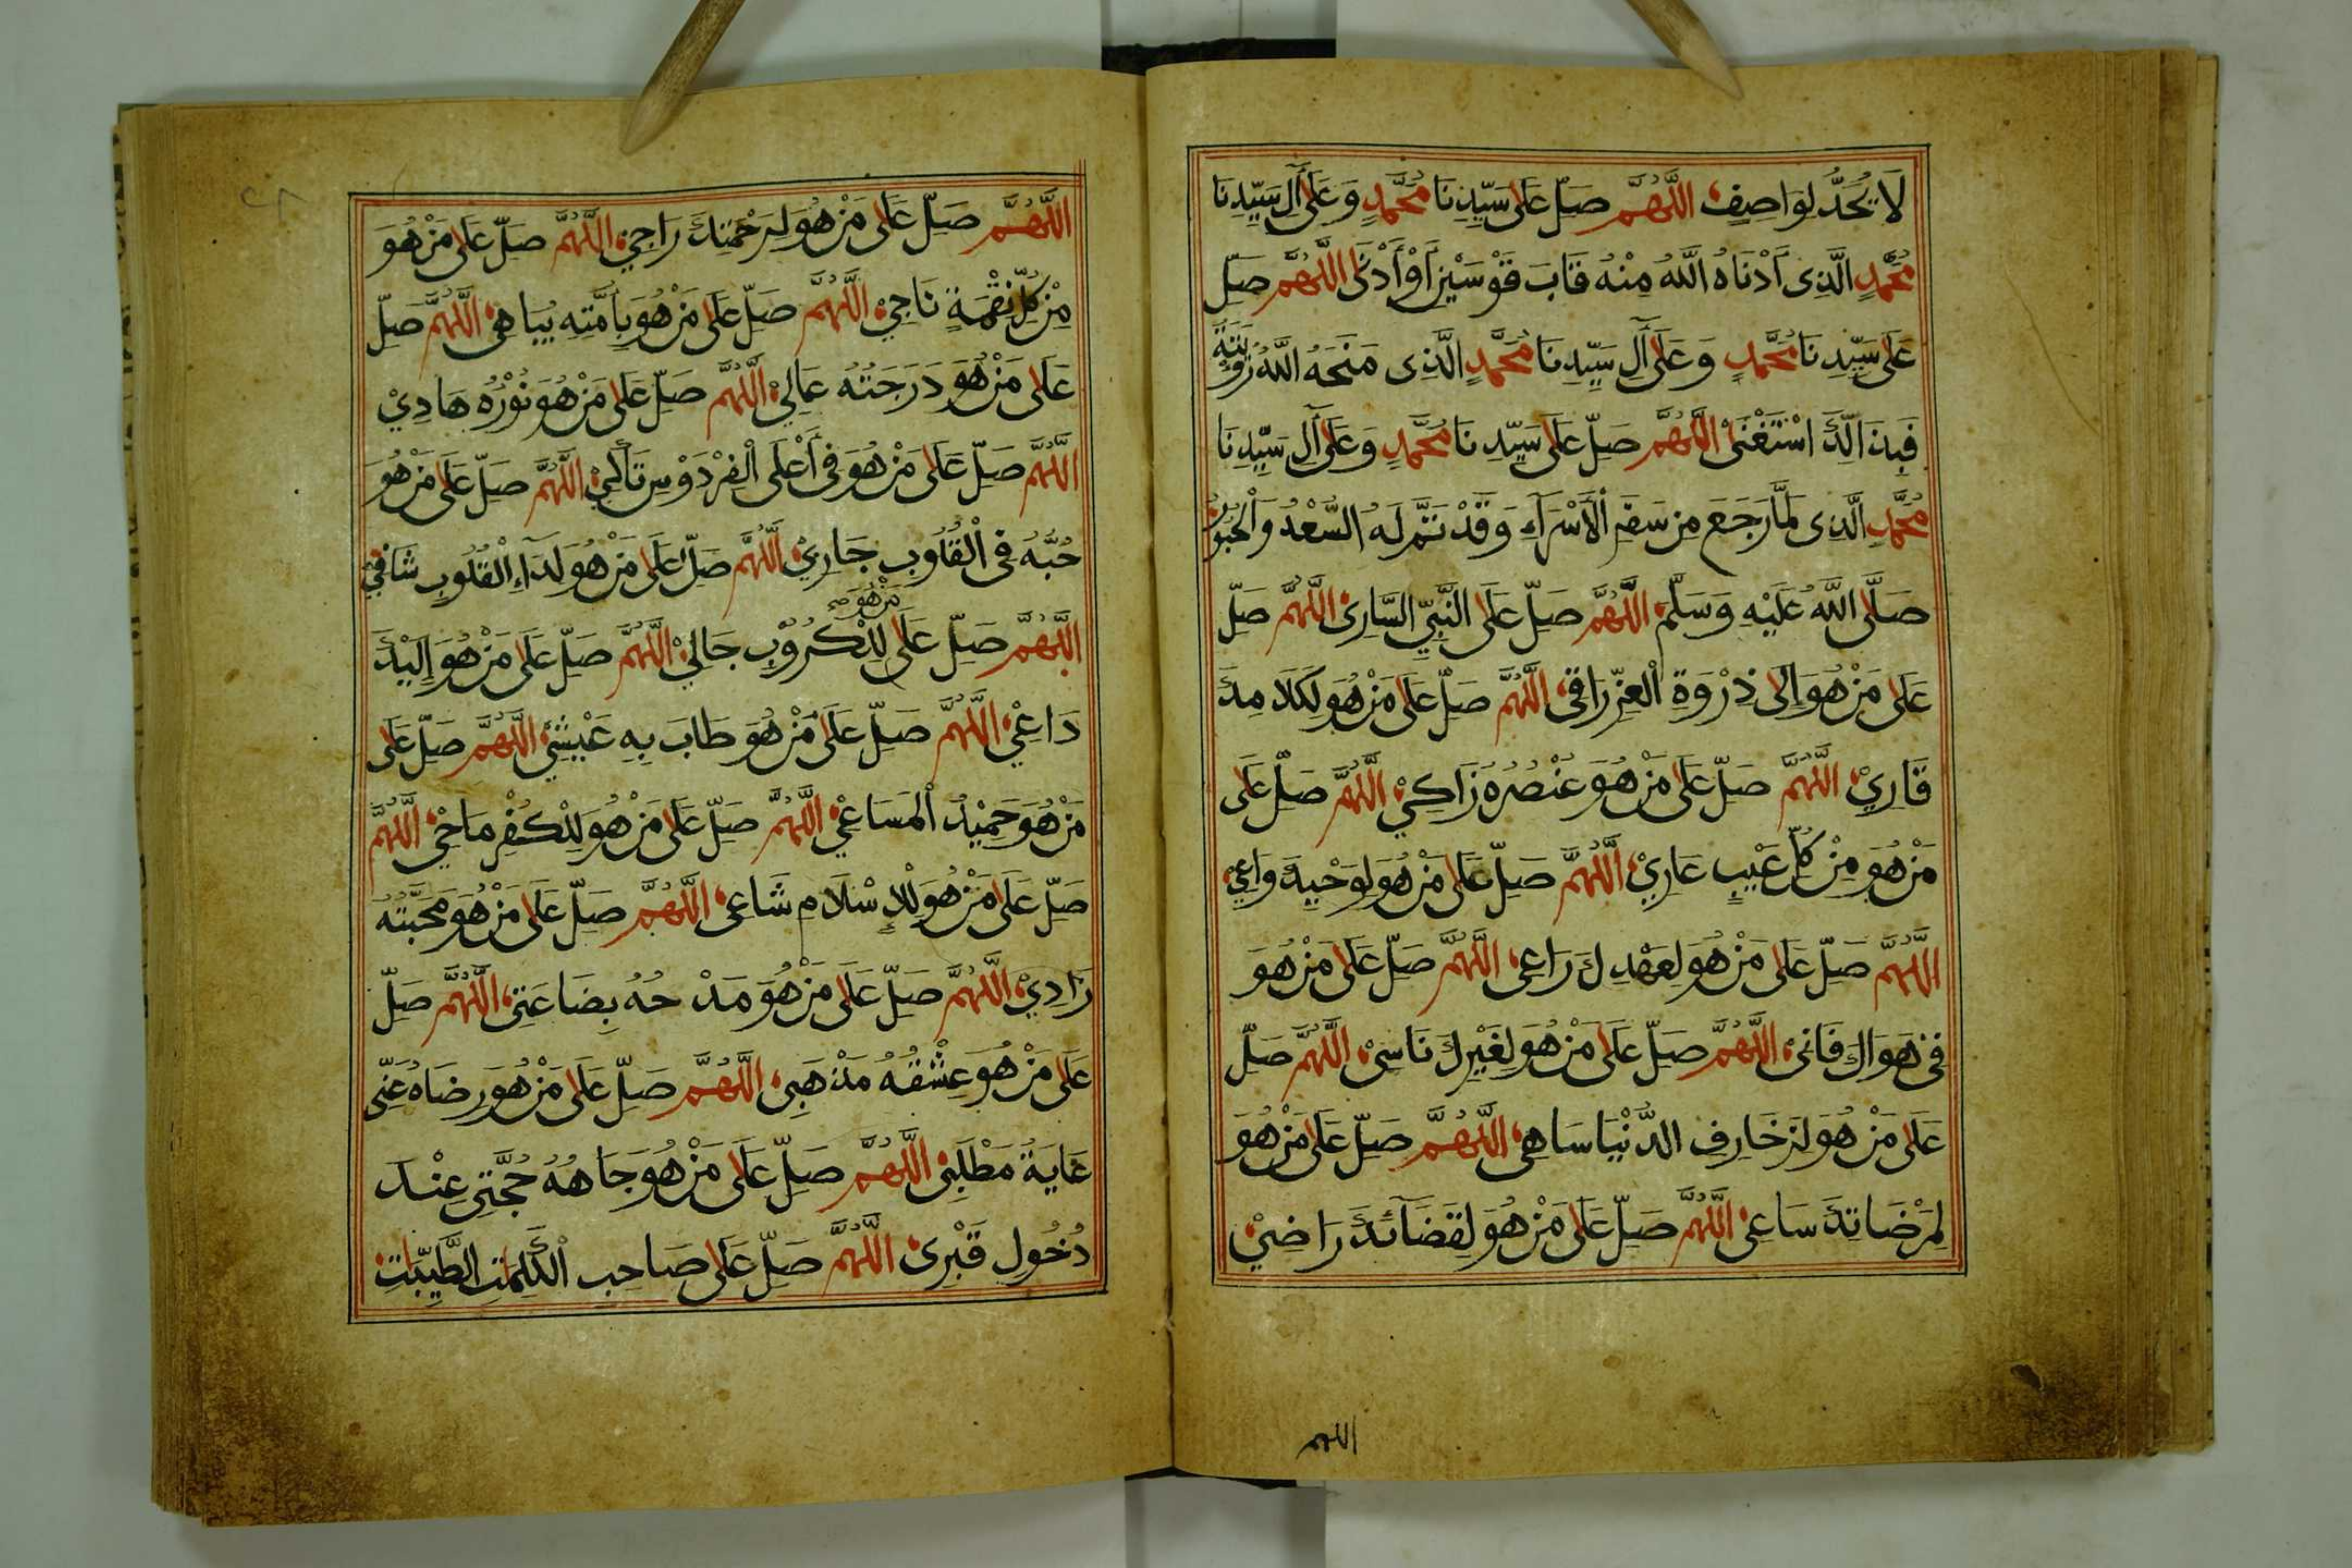 لَا يُحَدُّ لِوَاصِفٍ اللَّهُمَّ صَلِّ عَلَى سَيِّدِنَا مُحَمَّدٍ وَعَلَى آلِ سَيِّدِنَا
مُحَمَّدٍ الَّذِى أَدْنَاهُ اللَّهُ مِنْهُ قَابَ قَوْسَيْنِ أَوْ أَدْنَى اللَّهُمَّ صَلِّ
عَلَى سَيِّدِنَا مُحَمَّدٍ وَعَلَى آلِ سَيِّدِنَا مُحَمَّدٍ الَّذِى مَنَحَهُ اللَّهُ رُؤْيَتَهُ
فَبِذَالِكَ اسْتَغْنَى اللَّهُمَّ صَلِّ عَلَى سَيِّدِنَا مُحَمَّدٍ وَعَلَى آلِ سَيِّدِنَا
مُحَمَّدٍ الَّذِى لَمَّا رَجَعَ مِنْ سَفَرِ الْأَسْرَآءِ وَقَدْ تَمَّ لَهُ السَّعْدُ وَالْحُبُورُ
صَلَّى اللَّهُ عَلَيْهِ وَسَلَّمَ اللَّهُمَّ صَلِّ عَلَى النَّبِيِّ السَّارِى اللَّهُمَّ صَلِّ
عَلَى مَنْ هُوَ إِلَى ذِرْوَةِ الْعِزِّ رَاقِى اللَّهُمَّ صَلِّ عَلَى مَنْ هُوَ لِكَلَامِكَ
قَارِيْ اللَّهُمَّ صَلِّ عَلَى مَنْ هُوَ عُنْصُرُهُ زَاكِيْ اللَّهُمَّ صَلِّ عَلَى
مَنْ هُوَ مِنْ كُلِّ عَيْبٍ عَارِيْ اللَّهُمَّ صَلِّ عَلَى مَنْ هُوَ لِوَحْيِكَ وَاعِي
اللَّهُمَّ صَلِّ عَلَى مَنْ هُوَ لِعَهْدِكَ رَاعِى اللَّهُمَّ صَلِّ عَلَى مَنْ هُوَ
فِى هَوَاكَ فَانِىْ اللَّهُمَّ صَلِّ عَلَى مَنْ هُوَ لِغَيْرِكَ نَاسِىْ اللَّهُمَّ صَلِّ
عَلَى مَنْ هُوَ لِزَخَارِفِ الدُّنْيَا سَاهِى اللَّهُمَّ صَلِّ عَلَى مَنْ هُوَ
لِمَرْضَاتِكَ سَاعِى اللَّهُمَّ صَلِّ عَلَى مَنْ هُوَ لِقَضَآئِكَ رَاضِيْ
اللهم
اللَّهُمَّ صَلِّ عَلَى مَنْ هُوَ لِرَحْمَتِكَ رَاجِيْ اللَّهُمَّ صَلِّ عَلَى مَنْ هُوَ
مِنْ كُلِّ نِقْمَةٍ نَاجِيْ اللَّهُمَّ صَلِّ عَلَى مَنْ هُوَ بِأُمَّتِهِ يُبَاهِى اللَّهُمَّ صَلِّ
عَلَى مَنْ هُوَ دَرَجَتُهُ عَالِيْ اللَّهُمَّ صَلِّ عَلَى مَنْ هُوَ نُوْرُهُ هَادِيْ
اللَّهُمَّ صَلِّ عَلَى مَنْ هُوَ فِى أَعْلَى الْفِرْدَوْسِ تَاكِيْ اللَّهُمَّ صَلِّ عَلَى مَنْ هُوَ
حُبُّهُ فِى الْقُلُوبِ جَارِيْ اللَّهُمَّ صَلِّ عَلَى مَنْ هُوَ لِدَآءِ الْقُلُوبِ شَافِيْ
اللَّهُمَّ صَلِّ عَلَى مَنْ هُوَ لِلْكُرُوْبِ جَالِيْ اللَّهُمَّ صَلِّ عَلَى مَنْ هُوَ إِلَيْكَ
دَاعِيْ اللَّهُمَّ صَلِّ عَلَى مَنْ هُوَ طَابَ بِهِ عَيْشِيْ اللَّهُمَّ صَلِّ عَلَى
مَنْ هُوَ حَمِيْدُ الْمَسَاعِيْ اللَّهُمَّ صَلِّ عَلَى مَنْ هُوَ لِلْكُفْرِ مَاحِيْ اللَّهُمَّ
صَلِّ عَلَى مَنْ هُوَ لِلْإِسْلَامِ شَاعِى اللَّهُمَّ صَلِّ عَلَى مَنْ هُوَ مَحَبَّتُهُ
زَادِيْ اللَّهُمَّ صَلِّ عَلَى مَنْ هُوَ مَدْحُهُ بِضَاعَتِى اللَّهُمَّ صَلِّ
عَلَى مَنْ هُوَ عِشْقُهُ مَذْهَبِى اللَّهُمَّ صَلِّ عَلَى مَنْ هُوَ رِضَاهُ عَنِّى
غَايَةُ مَطْلَبِى اللَّهُمَّ صَلِّ عَلَى مَنْ هُوَ جَاهُهُ حُجَّتِى عِنْدَ
دُخُولِ قَبْرِى اللَّهُمَّ صَلِّ عَلَى صَاحِبِ الْكَلِمٰتِ الطَّيِّبٰتِ